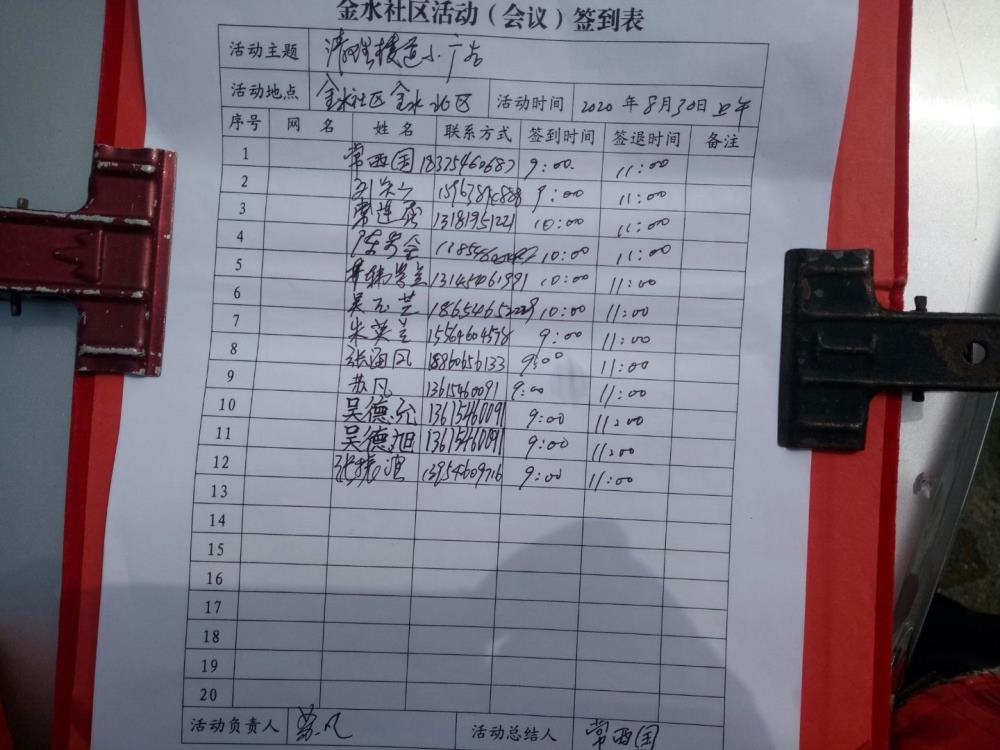 金水社区活动（会议）签到表
活动主题 清理楼道小广告
活动地点 金水社区金水北区 活动时间 2020年8月30日上午
序号 网名 姓名 联系方式 签到时间 签退时间 备注
1 常西国 18325460687 9:00 11:00
2 9:00 11:00
3 常莲 13181951221 10:00 11:00
4 10:00 11:00
5 10:00 11:00
6 吴玉芝 10:00 11:00
7 朱英兰 15564604578 9:00 11:00
8 张海风 9:00 11:00
9 苏凡 13615460091 9:00 11:00
10 吴德 13615460091 9:00 11:00
11 吴德旭 13615460091 9:00 11:00
12 13954609716 9:00 11:00
13
14
15
16
17
18
19
20
活动负责人 活动总结人 常西国